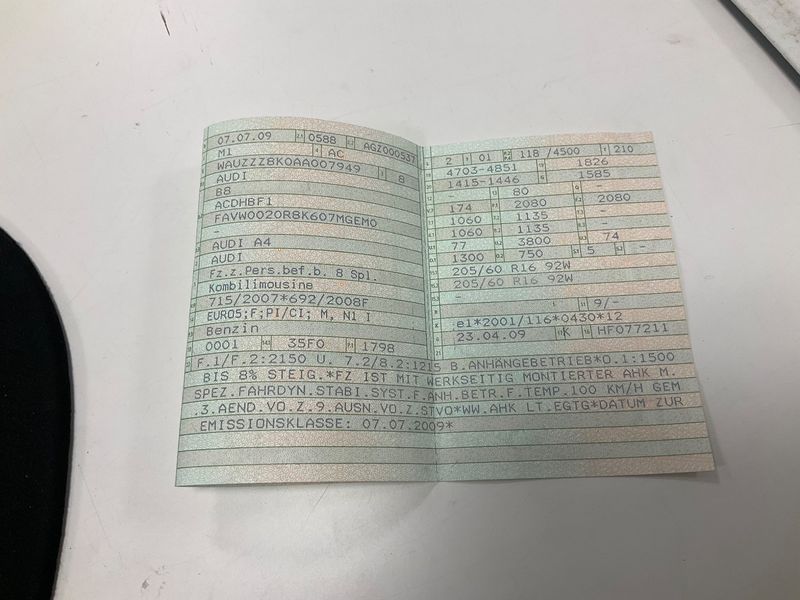 07.07.09 0588 AGZ000537
M1 AC
WAUZZZ8K0AA007949 8
AUDI
B8
ACDHBF1
FAVW0020R8K607MGEM0
-
AUDI A4
AUDI
Fz.z.Pers.bef.b. 8 Spl.
Kombilimousine
715/2007*692/2008F
EURO5;F;PI/CI; M, N1 I
Benzin
0001 35F0 1798
2 01 118 /4500 210
4703-4851 1826
1415-1446 1585
80 -
174 2080 2080
1060 1135 -
1060 1135
77 3800 74
1300 750 5 -
205/60 R16 92W
205/60 R16 92W
-
9/-
e1*2001/116*0430*12
23.04.09 K HF077211
F.1/F.2:2150 U. 7.2/8.2:1215 B.ANHÄNGEBETRIEB*O.1:1500
BIS 8% STEIG.*FZ IST MIT WERKSEITIG MONTIERTER AHK M.
SPEZ.FAHRDYN.STABI.SYST.F.ANH.BETR.F.TEMP.100 KM/H GEM
.3.AEND.VO.Z.9.AUSN.VO.Z.STVO*WW.AHK LT.EGTG*DATUM ZUR
EMISSIONSKLASSE: 07.07.2009*